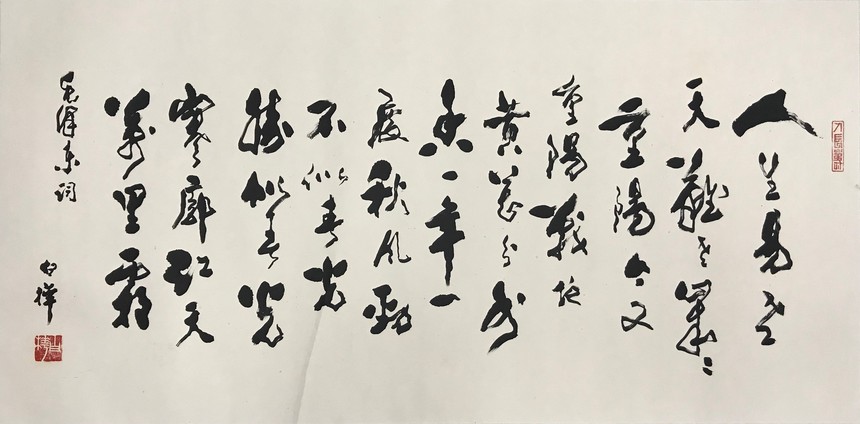 人生易老
天難老歲〻
重陽今又
重陽戰地
黄花分外
香一年一
度秋風勁
不似春光
勝似春光
寥廓江天
萬里霜
毛澤東詞
白樺